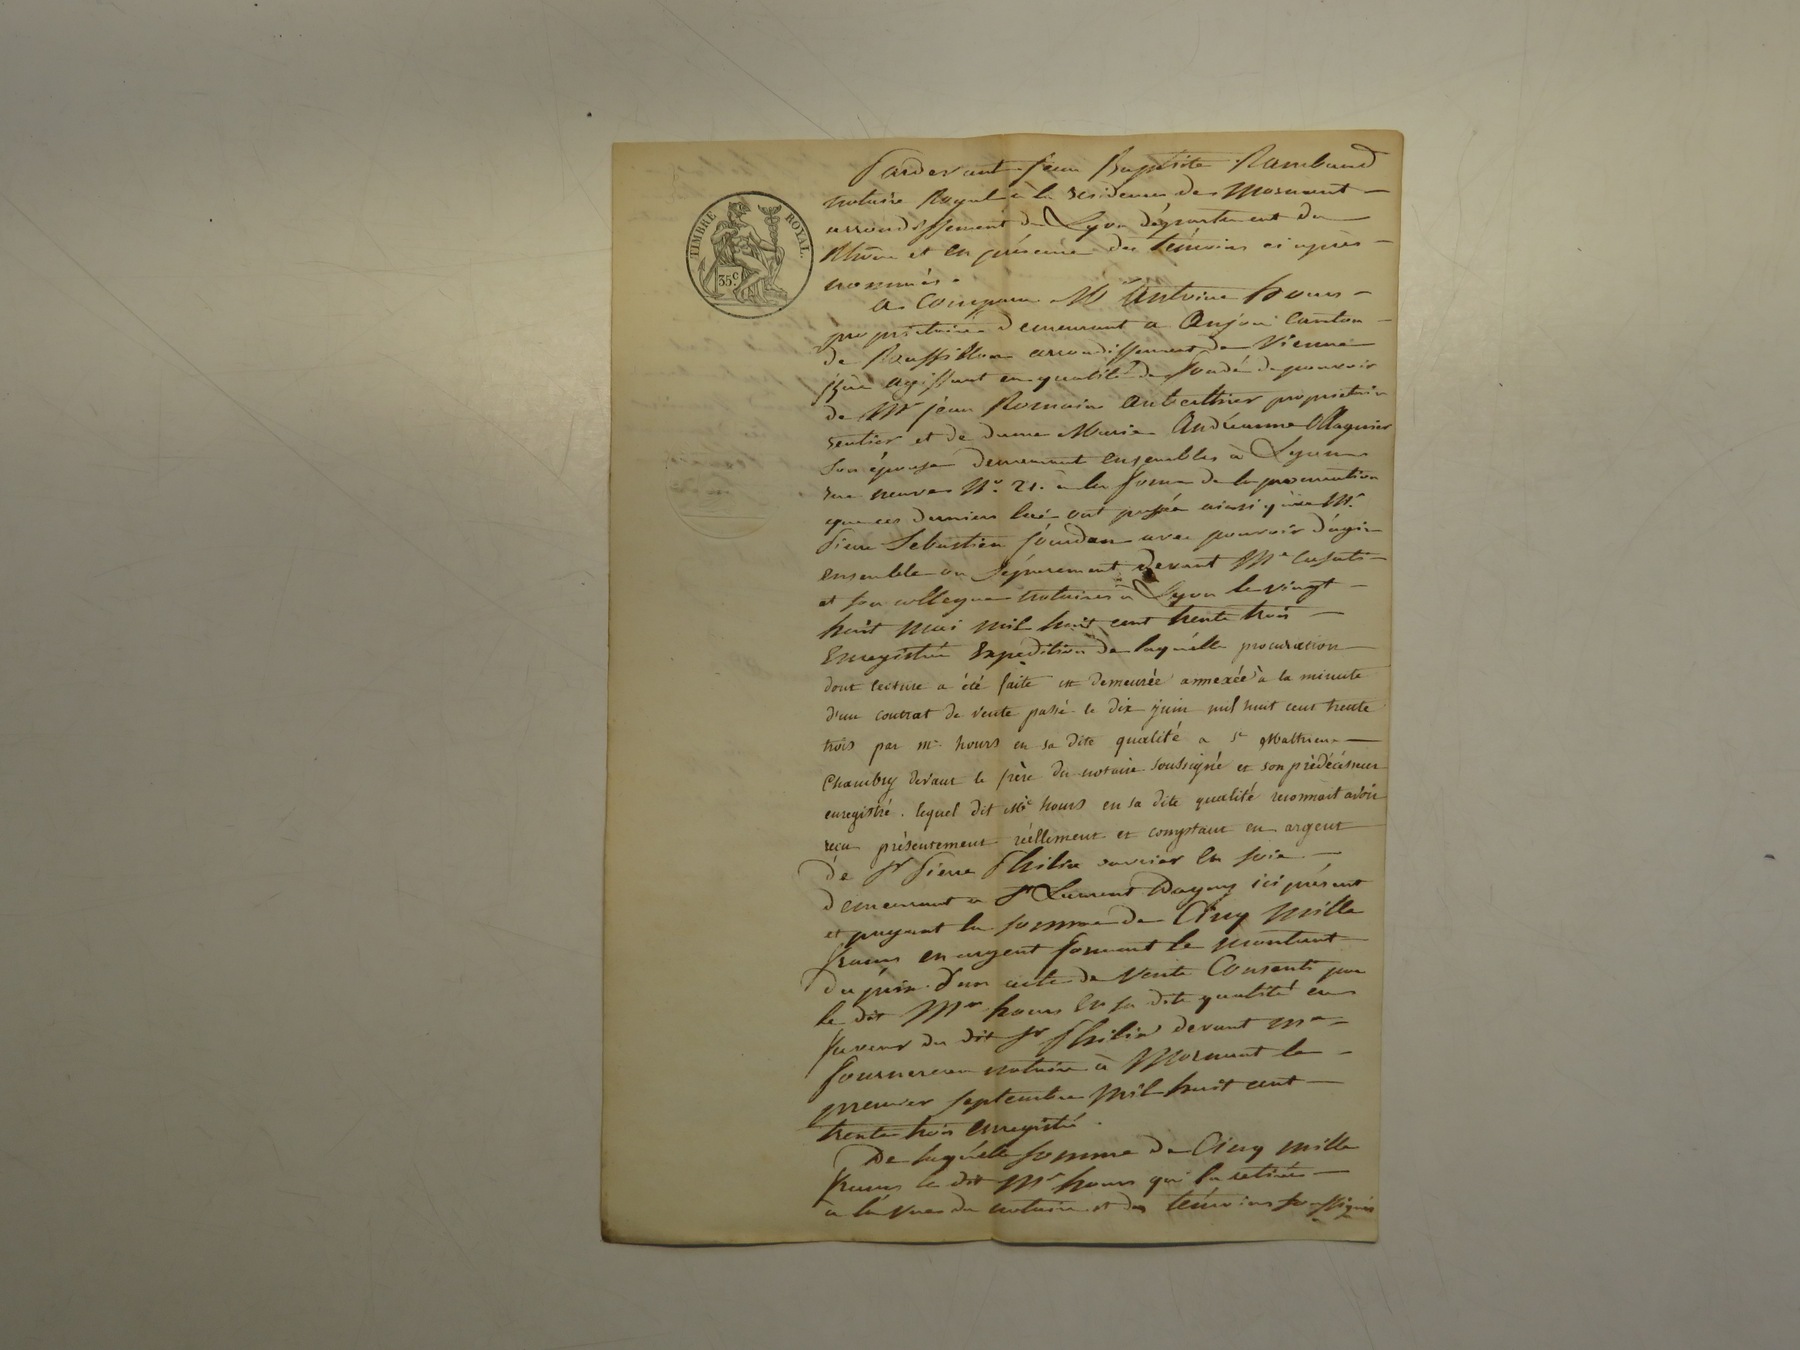 TIMBRE ROYAL.
35 c.
Pardevant Jean Baptiste Rambaud
notaire Royal à la résidence de Mornant
arrondissement de Lyon département du
Rhône et en présence des témoins ci après
nommés.
a Comparu Mr Antoine hours
propriétaire demeurant a Anjou Canton
de Roussillon arrondissement de Vienne
isère agissant en qualité de fondé de pouvoir
de Mr jean Romain propriétaire
rentier et de dame Marie Andréanne Magnier
Son épouse demeurant ensembles à Lyon
rue neuve No. 21. à la forme de la procuration
que ces derniers lui ont passée ainsi qu'à Mr
Pierre Sébastien Jourdan avec pouvoir d'agir
ensemble ou séparement devant Me Casati
et son collegue notaires à Lyon le vingt
huit mai mil huit cent trente trois
Enregistrée Expédition de laquélle procuration
dont lecture a été faite est demeurée annexée à la minute
d'un contrat de vente passé le dix juin mil huit cent trente
trois par mr hours en sa dite qualité a St Mathieu
Chambry devant le frère du notaire soussigné et son prédécésseur
enregistré. lequel dit Mr hours en sa dite qualité reconnait avoir
recu présentement réellement et comptant en argent
de Sr Pierre Philix ouvrier en soie
demeurant a St Laurent Dagny ici présent
et payant la somme de Cinq mille
francs en argent formant le montant
du prix d'un acte de vente Consenti par
le dit Mr hours en sa dite qualité en
faveur du dit Sr Philix devant me
fournereau notaire à Mornant le
premier septembre mil huit cent
trente trois enregistré.
De laquélle somme de Cinq mille
francs le dit Mr hours qui l'a retirée
à la vue du notaire et des témoins soussignés